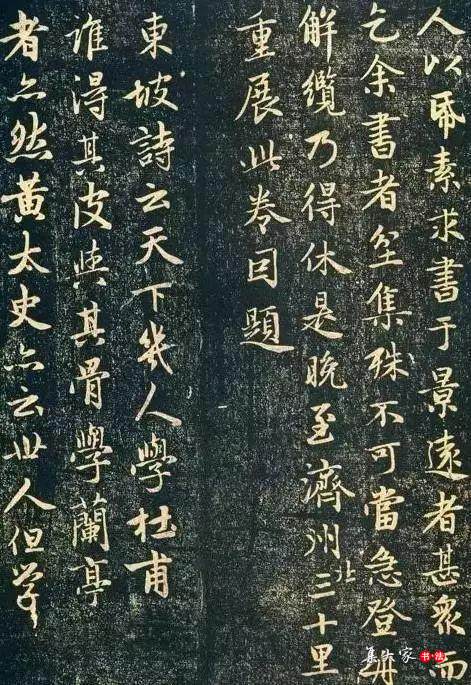 人以帋素求書于景遠者甚衆而
乞余書者坌集殊不可當急登舟
解纜乃得休是晚至濟州北三十里
重展此卷因題
東坡詩云天下幾人學杜甫
誰得其皮與其骨學蘭亭
者亦然黄太史亦云世人但學
集大家
书·法